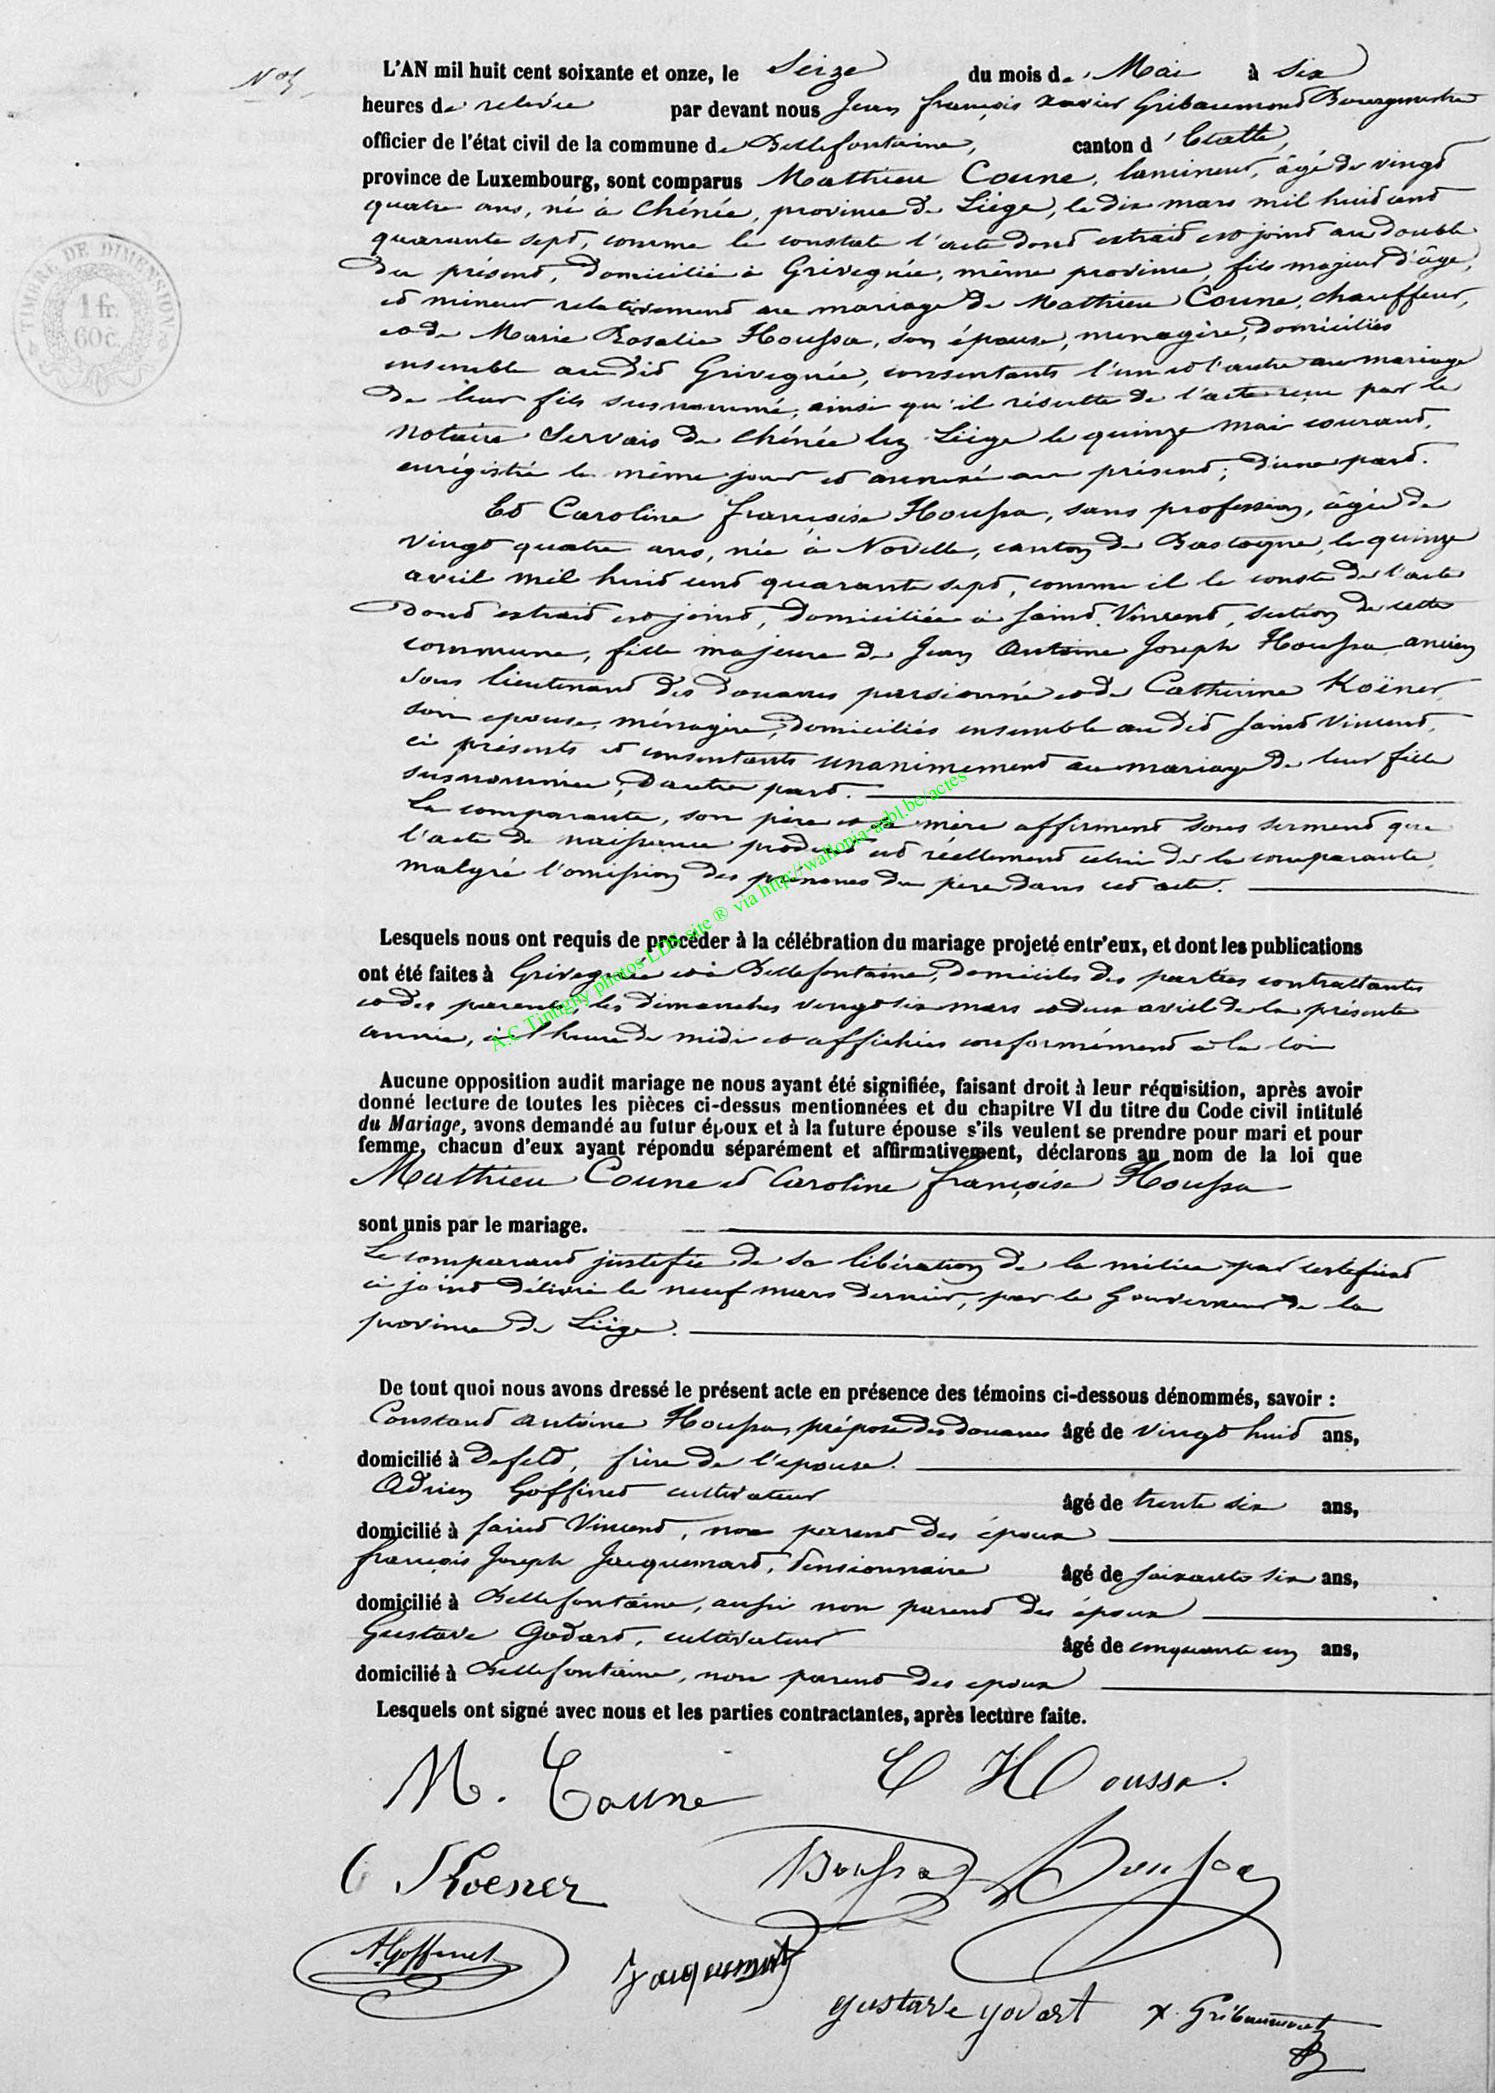 N° 5
L'AN mil huit cent soixante et onze, le Seize du mois de Mai à six
heures de relevée par devant nous Jean françois xavier Gribaumont Bourgmestre
officier de l'état civil de la commune de Bellefontaine, canton d'Etalle,
province de Luxembourg, sont comparus Mathieu Coune, lamineur, âgé de vingt
quatre ans, né à Chênée, province de Liège, le dix mars mil huit cent
quarante sept, comme le constate l'acte dont extrait est joint au double
du présent, domicilié à Grivegnée, même province, fils majeur d'âge,
et mineur relativement au mariage de Mathieu Coune, chauffeur,
et de Marie Rosalie Houssa, son épouse, menagère, domiciliés
ensemble au dit Grivegnée, consentants l'un et l'autre au mariage
de leur fils susnommé, ainsi qu'il résulte de l'acte reçu par le
notaire Servais de Chênée lez Liège le quinze mai courant,
enrégistré le même jour et annexé au présent; d'une part.
Et Caroline françoise Houssa, sans profession, âgée de
vingt quatre ans, née à Noville, canton de Bastogne, le quinze
avril mil huit cent quarante sept, comme il le conste de l'acte
dont extrait est joint, domiciliée à Saint Vincent, section de cette
commune, fille majeure de Jean Antoine Joseph Houssa ancien
sous lieutenant des douanes pensionné et de Catherine Koëner,
son epouse, ménagère, domiciliés ensemble au dit Saint Vincent,
ci présents et consentants unanimement au mariage de leur fille
susnommée; d'autre part.
La comparante, son père et sa mère affirment sous serment que
l'acte de naissance produit est réellement celui de la comparante,
malgré l'omission des prénoms du père dans cet acte.
Lesquels nous ont requis de procéder à la célébration du mariage projeté entr'eux, et dont les publications
ont été faites à Grivegnée et à Bellefontaine, domiciles des parties contractantes
et des parents, les dimanches vingt six mars et deux avril de la présente
année, à l'heure de midi et affichées conformément à la loi
Aucune opposition audit mariage ne nous ayant été signifiée, faisant droit à leur réquisition, après avoir
donné lecture de toutes les pièces ci-dessus mentionnées et du chapitre VI du titre du Code civil intitulé
du Mariage, avons demandé au futur époux et à la future épouse s'ils veulent se prendre pour mari et pour
femme, chacun d'eux ayant répondu séparément et affirmativement, déclarons au nom de la loi que
Mathieu Coune et Caroline françoise Houssa
sont unis par le mariage.
Le comparant justifie de sa libération de la milice par certificat
ci joint délivré le neuf mars dernier, par le Gouverneur de la
province de Liège.
De tout quoi nous avons dressé le présent acte en présence des témoins ci-dessous dénommés, savoir :
Constant Antoine Houssa, préposé des douanes âgé de vingt huit ans,
domicilié à Defeld, frère de l'epouse.
Adrien Goffinet cultivateur âgé de trente six ans,
domicilié à Saint Vincent, non parent des époux
françois Joseph Jacquemart, Pensionnaire âgé de soixante six ans,
domicilié à Bellefontaine, aussi non parent des époux
Gustave Godart, cultivateur âgé de cinquante un ans,
domicilié à Bellefontaine, non parent des epoux
Lesquels ont signé avec nous et les parties contractantes, après lecture faite.
M. Coune C Houssa.
C Koener Houssa Houssa
A. Goffinet Jacquemart
gustave godart x. Gribaumont
TIMBRE DE DIMENSION
1 fr.
60 c.
A.C Tintigny photos LDS site ® via http://wallonia-asbl.be/actes